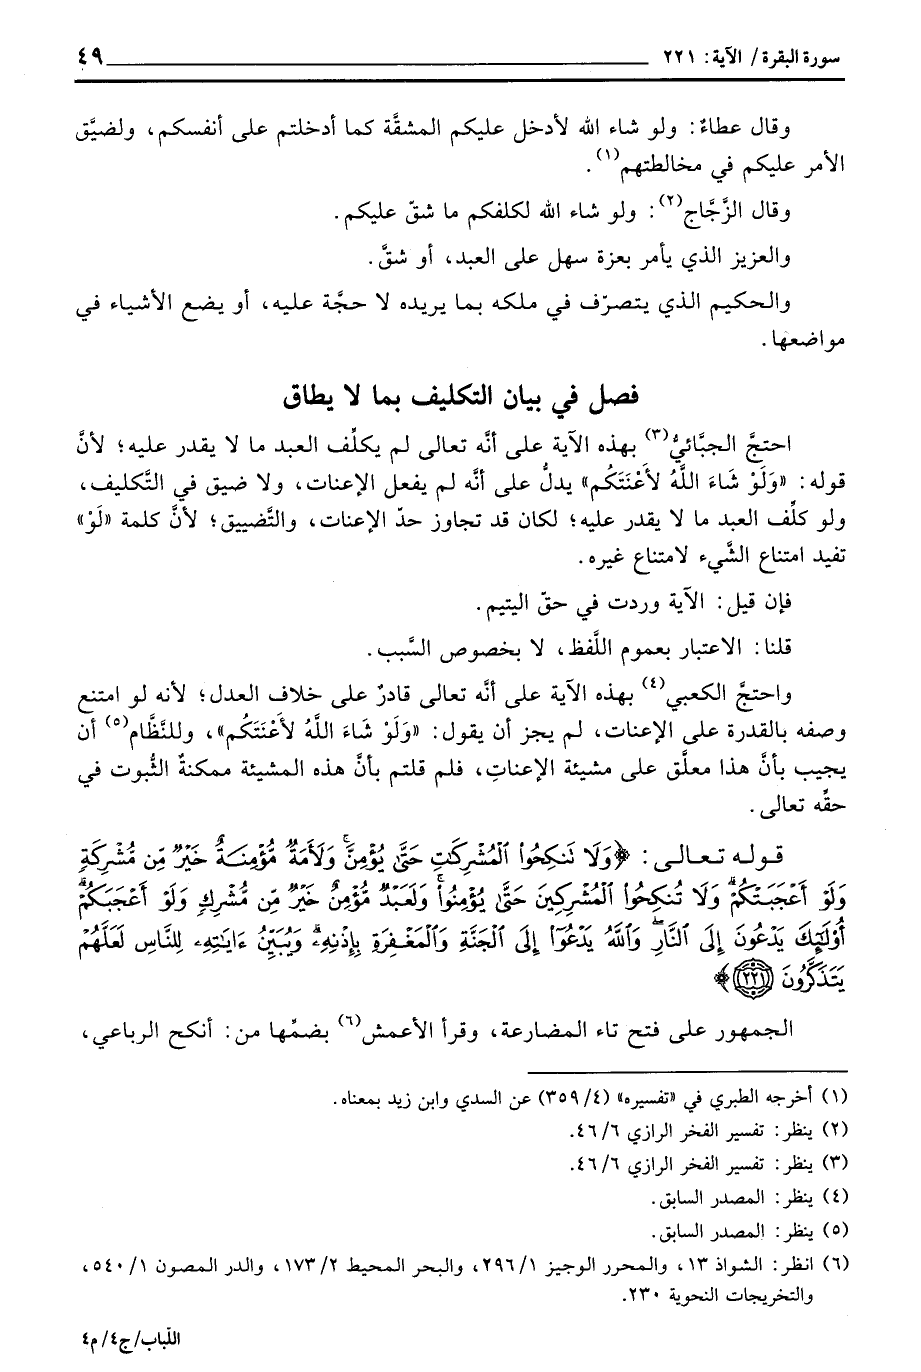 سورة البقرة/ الآية: ٢٢١ ٤٩
وقال عطاءٌ: ولو شاء الله لأدخل عليكم المشقَّة كما أدخلتم على أنفسكم، ولضيَّق
الأمر عليكم في مخالطتهم(١).
وقال الزَّجَّاج(٢): ولو شاء الله لكلفكم ما شقّ عليكم.
والعزيز الذي يأمر بعزة سهل على العبد، أو شقَّ.
والحكيم الذي يتصرّف في ملكه بما يريده لا حجَّة عليه، أو يضع الأشياء في
مواضعها.
فصل في بيان التكليف بما لا يطاق
احتجَّ الجبَّائيُّ(٣) بهذه الآية على أنَّه تعالى لم يكلِّف العبد ما لا يقدر عليه؛ لأنَّ
قوله: «وَلَوْ شَاءَ اللَّهُ لأَعْنَتَكُم» يدلُّ على أنَّه لم يفعل الإعنات، ولا ضيق في التَّكليف،
ولو كلِّف العبد ما لا يقدر عليه؛ لكان قد تجاوز حدّ الإعنات، والتَّضييق؛ لأنَّ كلمة «لَوْ»
تفيد امتناع الشَّيء لامتناع غيره.
فإن قيل: الآية وردت في حقّ اليتيم.
قلنا: الاعتبار بعموم اللَّفظ، لا بخصوص السَّبب.
واحتجَّ الكعبي(٤) بهذه الآية على أنَّه تعالى قادرٌ على خلاف العدل؛ لأنه لو امتنع
وصفه بالقدرة على الإعنات، لم يجز أن يقول: «وَلَوْ شَاءَ اللَّهُ لأَعْنَتَكُم»، وللنَّظَّام(٥) أن
يجيب بأنَّ هذا معلّق على مشيئة الإعناتِ، فلم قلتم بأنَّ هذه المشيئة ممكنةٌ الثُّبوت في
حقِّه تعالى.
قوله تعالى: ﴿وَلَا تَنكِحُوا۟ ٱلْمُشْرِكَٰتِ حَتَّىٰ يُؤْمِنَّ ۚ وَلَأَمَةٌ مُّؤْمِنَةٌ خَيْرٌ مِّن مُّشْرِكَةٍ
وَلَوْ أَعْجَبَتْكُمْ ۗ وَلَا تُنكِحُوا۟ ٱلْمُشْرِكِينَ حَتَّىٰ يُؤْمِنُوا۟ ۚ وَلَعَبْدٌ مُّؤْمِنٌ خَيْرٌ مِّن مُّشْرِكٍ وَلَوْ أَعْجَبَكُمْ ۗ
أُو۟لَٰٓئِكَ يَدْعُونَ إِلَى ٱلنَّارِ ۖ وَٱللَّهُ يَدْعُوٓا۟ إِلَى ٱلْجَنَّةِ وَٱلْمَغْفِرَةِ بِإِذْنِهِۦ ۖ وَيُبَيِّنُ ءَايَٰتِهِۦ لِلنَّاسِ لَعَلَّهُمْ
يَتَذَكَّرُونَ (٢٢١)﴾
الجمهور على فتح تاء المضارعة، وقرأ الأعمش(٦) بضمِّها من: أنكح الرباعي،
(١) أخرجه الطبري في «تفسيره» (٤/ ٣٥٩) عن السدي وابن زيد بمعناه.
(٢) ينظر: تفسير الفخر الرازي ٦/ ٤٦.
(٣) ينظر: تفسير الفخر الرازي ٦/ ٤٦.
(٤) ينظر: المصدر السابق.
(٥) ينظر: المصدر السابق.
(٦) انظر: الشواذ ١٣، والمحرر الوجيز ١/ ٢٩٦، والبحر المحيط ٢/ ١٧٣، والدر المصون ١/ ٥٤٠،
والتخريجات النحوية ٢٣٠.
اللّباب/ ج٤/ م٤